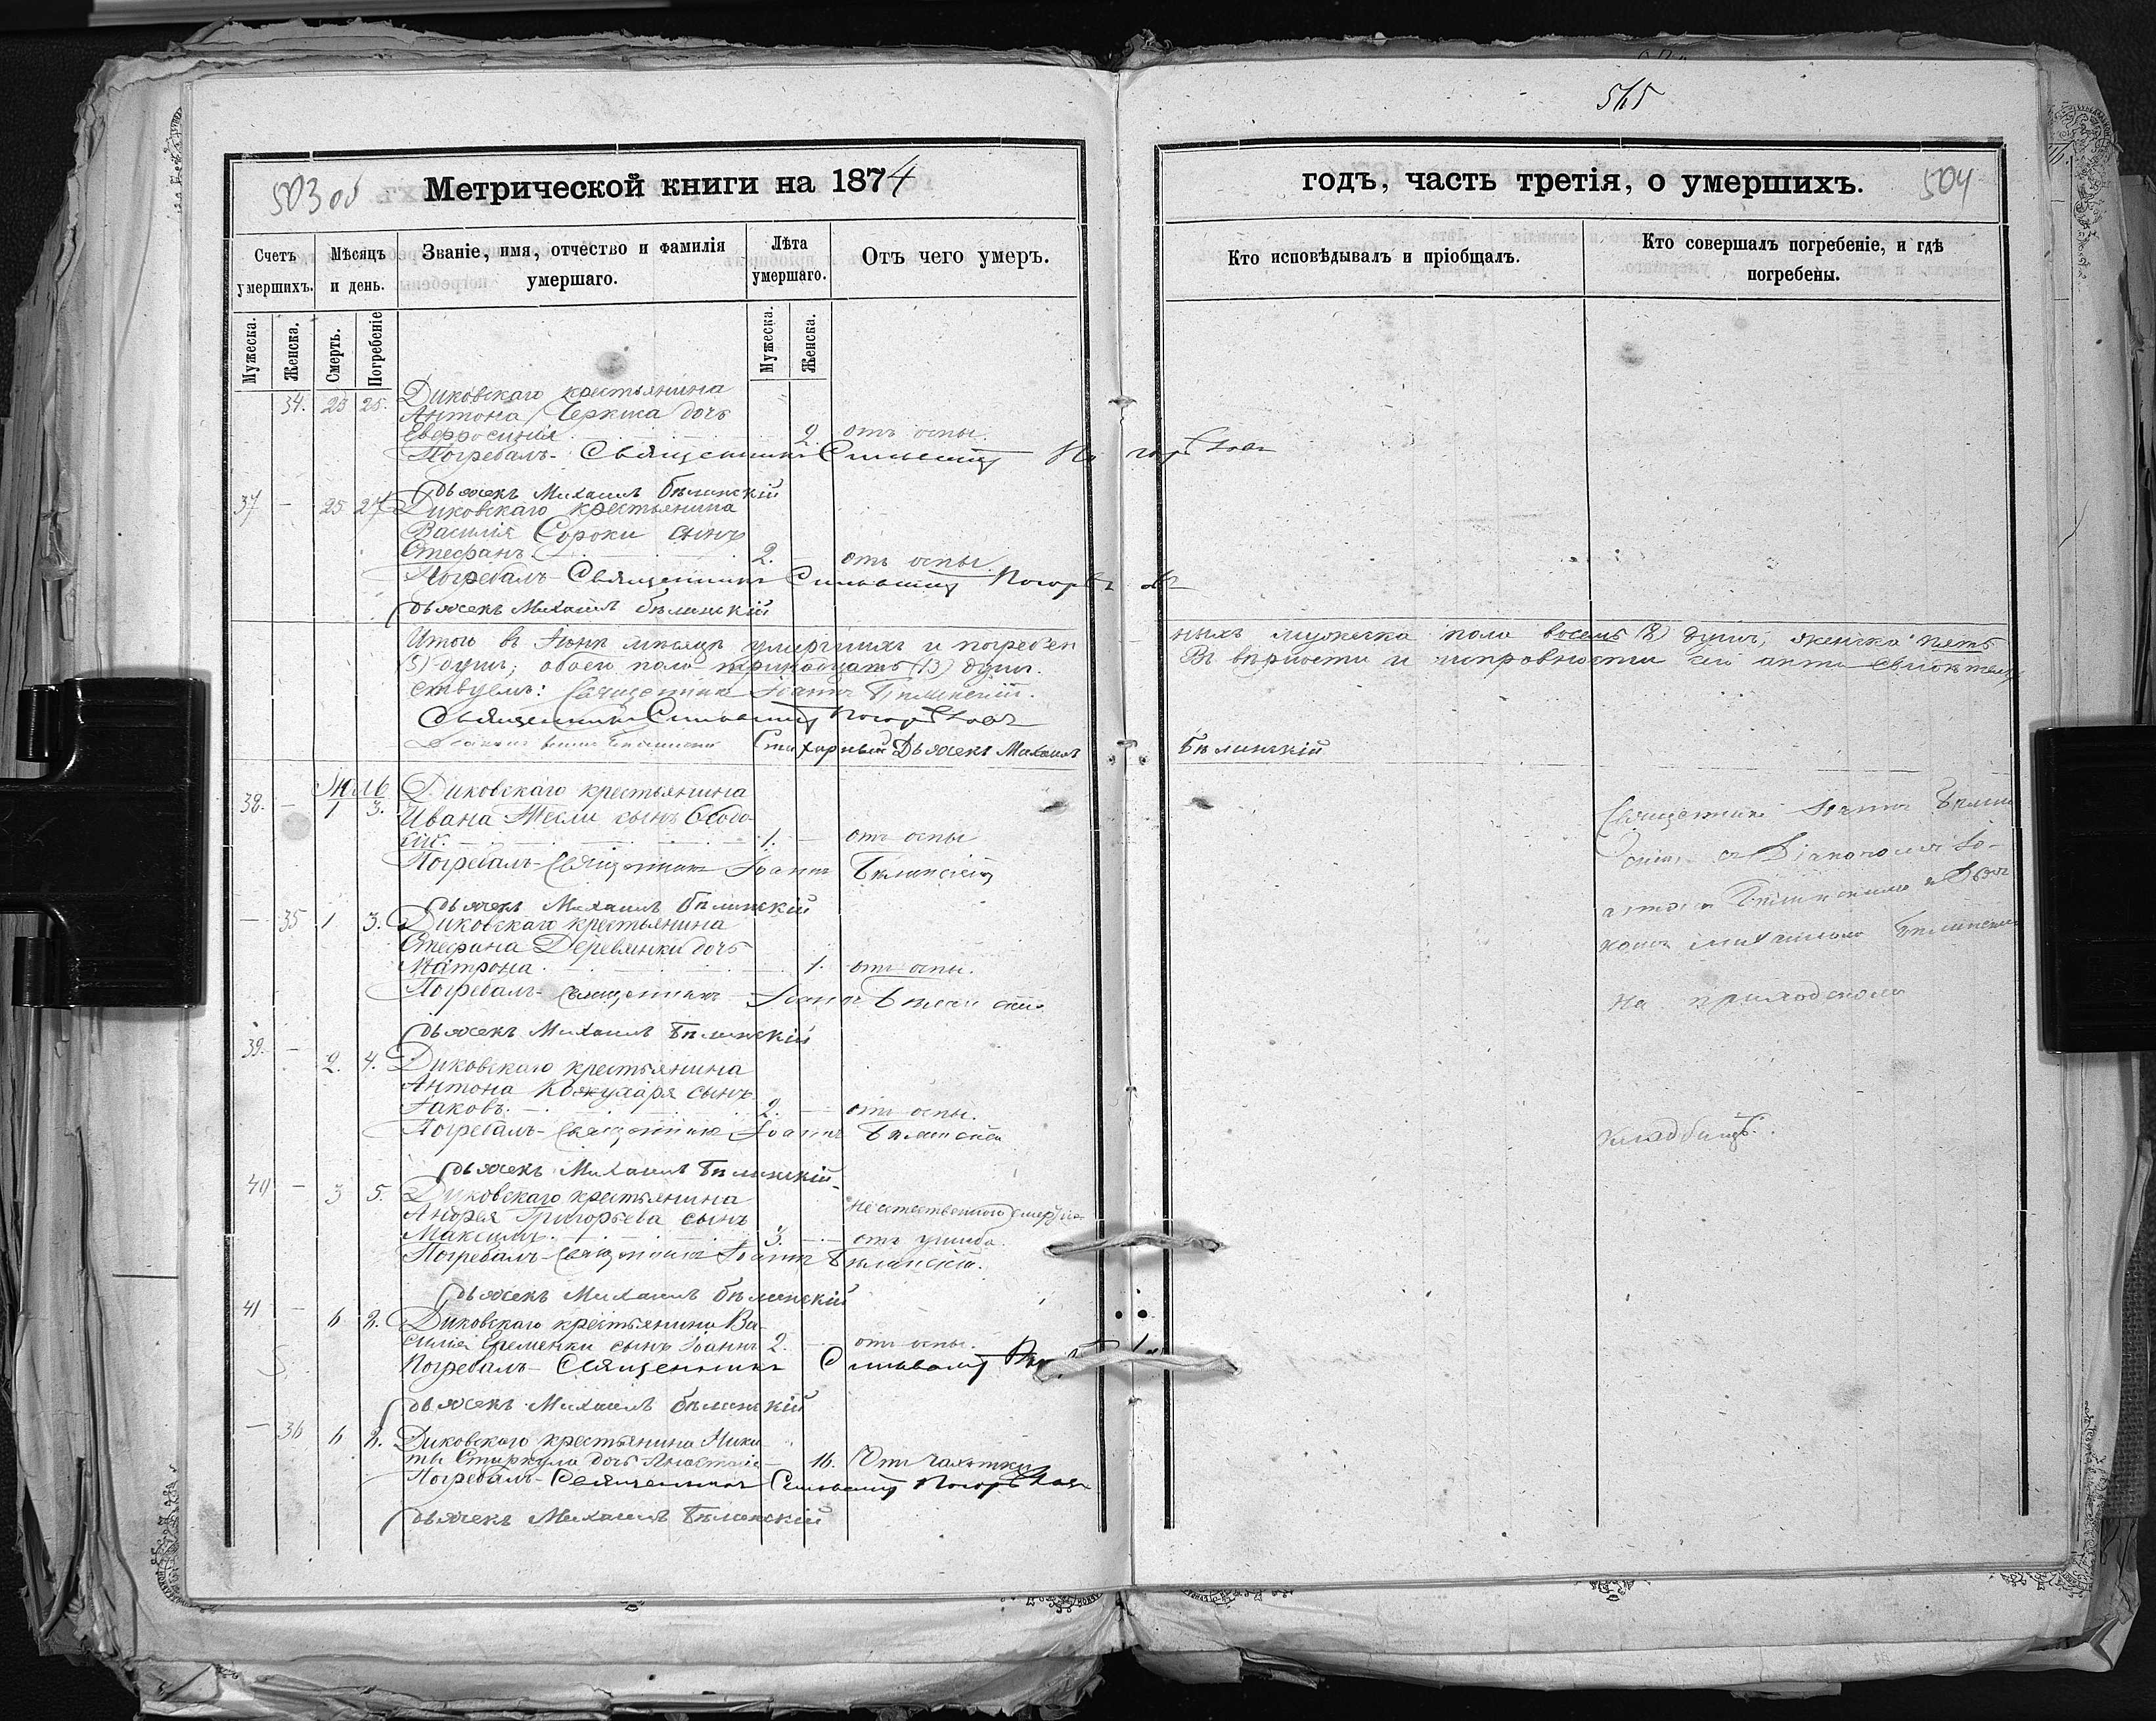 565
503 об
Метрической книги на 1874
годъ, часть третія, о умершихъ.
504
Счетъ умершихъ.
Мѣсяцъ и день.
Званіе, имя, отчество и фамилія умершаго.
Лѣта умершаго.
Отъ чего умеръ.
Кто исповѣдывалъ и пріобщалъ.
Кто совершалъ погребеніе, и гдѣ погребены.
Мужеска.
Женска.
Смерть.
Погребеніе
Мужеска.
Женска.
34. 25 25. Диковскаго крестьянина
Антона дочь
Евфросинія 2. отъ оспы.
Погребалъ- Священникъ Сильвестр
Дьячекъ Михаилъ Бѣлинскій
37 - 25 27 Диковскаго крестьянина
Василія Сороки сынъ
Стефанъ. 2. - отъ оспы.
Погребалъ- Священникъ Сильвестр
Дьячекъ Михаилъ Бѣлинскій
Итого въ Іюнѣ мѣсяцѣ умершихъ и погребен
ныхъ мужеска пола восемь (8) душъ, женска пять
(5) душъ; обоего пола тринадцать (13) душъ.
Въ вѣрности и исправности сей акты свидѣтель
ствуемъ: Священникъ Іоаннъ Бѣлинскій.
Священникъ Сильвестр
Стихарный Дьячекъ Михаилъ
Бѣлинскій
Іюль
38. - 1 3. Диковскаго крестьянина
Ивана сынъ Ѳеодо
сій. 1. - отъ оспы
Погребалъ- Священникъ Іоаннъ Бѣлинскій
Дьячекъ Михаилъ Бѣлинскій
- 35 1 3. Диковскаго крестьянина
Стефана Деревянки дочь
Матрона. 1. отъ оспы.
Погребалъ- Священникъ Іоаннъ Бѣлинскій
Дьячекъ Михаилъ Бѣлинскій
39. - 2. 4. Диковскаго крестьянина
Антона Кожухаря сынъ
Іаковъ. 2. - отъ оспы.
Погребалъ- Священникъ Іоаннъ Бѣлинскій
Дьячекъ Михаилъ Бѣлинскій
40 - 3 5. Диковскаго крестьянина
Андрея Григорьева сынъ
Максимъ. 3. - отъ ушиба.
Погребалъ- Священникъ Іоаннъ Бѣлинскій.
Дьячекъ Михаилъ Бѣлинскій
41 - 6 8. Диковскаго крестьянина Ва-
силія Еременки сынъ Іоаннъ 2. - отъ оспы.
Погребалъ- Священникъ Сильвестр
Дьячекъ Михаилъ Бѣлинскій
- 36 6 8. Диковскаго крестьянина Ники
ты дочь Анастасія 16. Отъ чахотки
Погребалъ- Священникъ Сильвестр
Дьячекъ Михаилъ Бѣлинскій
Священникъ Іоаннъ Бѣлин
скій съ Діакономъ Іо-
анномъ Бѣлинскимъ и Дьяч
комъ Михаиломъ Бѣлинским
На приходскомъ
кладбищѣ.